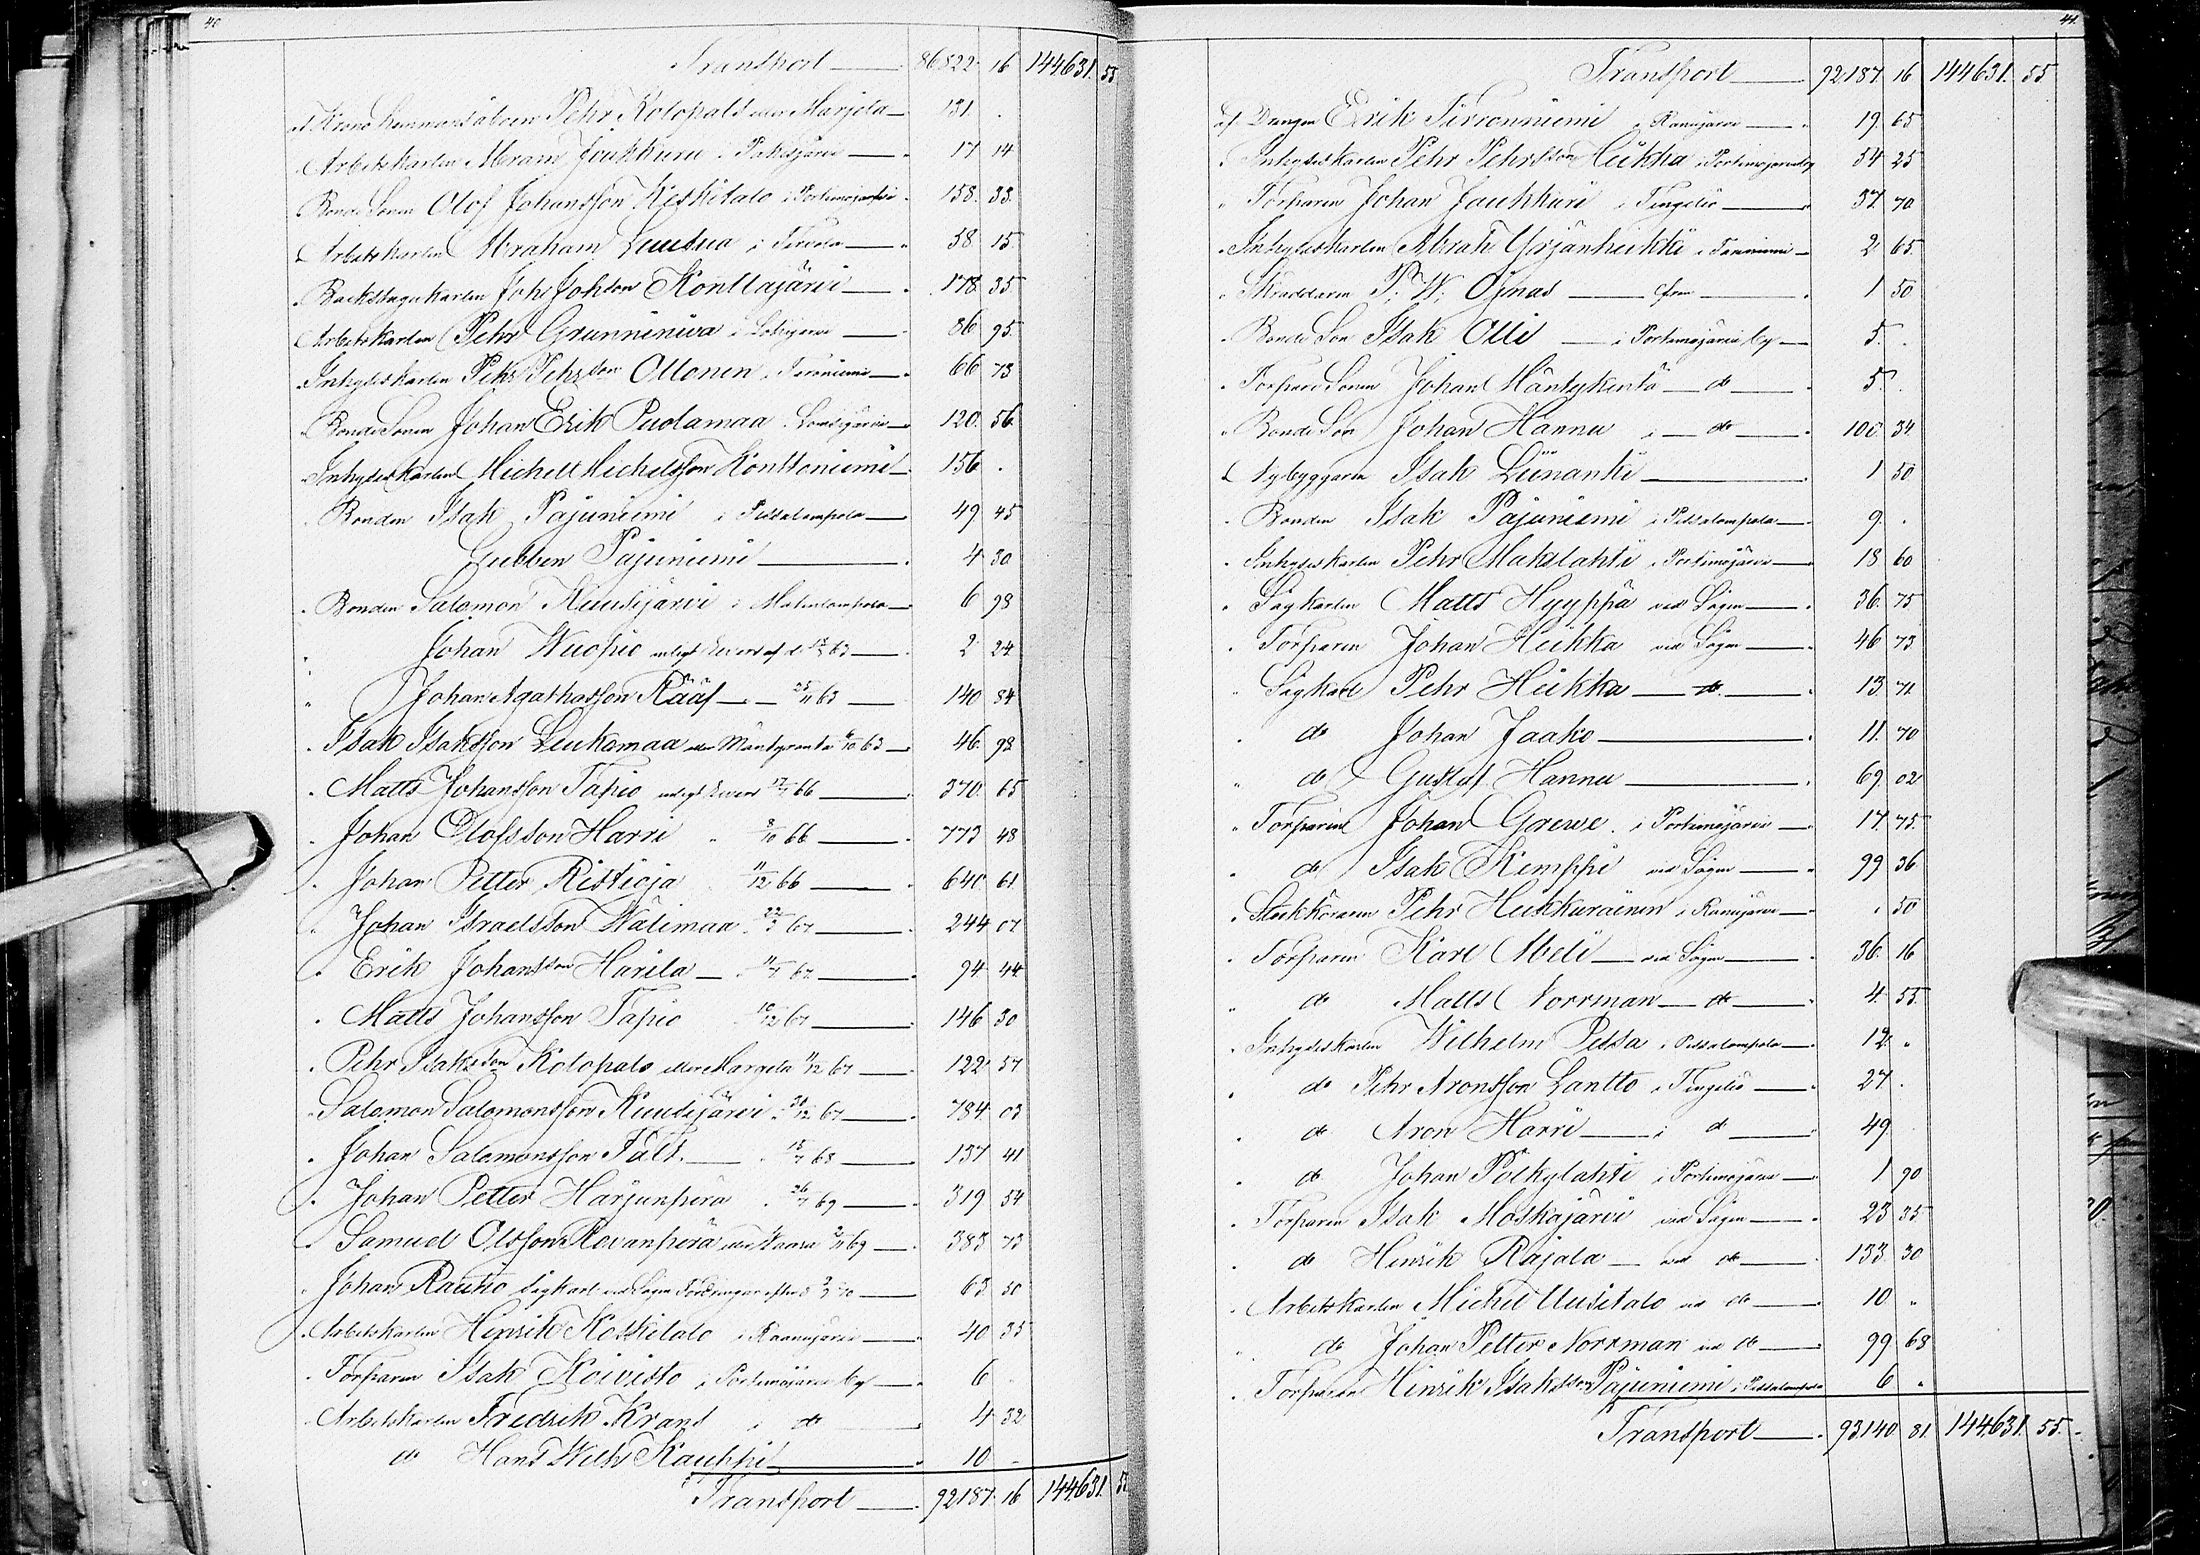 40
Transport 86822 16 144631. 55
af Krono hemmansåboen Pehr Kolopalo eller Marjeta 131 .
Arbetskarlen Abram Jaukkuru i 17 14
Bonde Sonen Olof Johansson Keskitalo i Portimojärvi 158. 33.
Arbetskarlen Abraham Luusua i Tervola 58 15
Backstugukarlen Joh: Johsson Konttajärvi 178. 35
Arbetskarlen Pehr Grunniniva i 86 95.
Inhyseskarlen Pehr Pehrsson Ollonen i 66 73
Bonde Sonen Johan Erik Pudamaa 120. 56
Inhyses Karlen Michel Michelsson Konttoniemi 156 .
Bonden Isak Pajuniemi i Pessalompolo 49 45
Gubben Pajuniemi 4 30
Bonden Salomon Kuusijärvi i 6 98
Johan Wuopio enligt Revers af d. 63 2 24
Johan Agathasson Rääf 25/11 63 140 84
Isak Isaksson Leukomaa eller Mäntyranta 63 46. 98
Matts Johansson Tapio enligt Revers 66 370. 65
Johan Olofsson Harri 8/10 66 773 48
Johan Petter Ristioja 11/12 66 640 61
Johan Israelsson Wälimaa 22/3 67 244 07
Erik Johansson Harila 67 94 44
Matts Johansson Tapio 12 67 146 30
Pehr Isaksson Kolopalo eller Margeta 11/12 67 122 57
Salomon Salomonsson Kuusijärvi 12 67 784. 03
Johan Salomonsson Fält 68 137 41
Johan Petter Harjunperä 26/7 69 319 54
Samuel Olsson Rovanperä eller Waara 69 383 73
Johan Rautio Sågkarl vid Sågen 63 50
Arbetskarlen Henrik Koskitalo i Raanujärvi 40 35
Torparen Isak Koivisto i Portimojärvi by 6 .
Arbetskarlen Fredrik Krans i do 4 32
do Hans Wilh: Kauppi 10 -
Transport 92187. 16 144631. 55
41.
Transport 92187 16 144631. 55
af Drängen Erik Tirronniemi i Raanujärvi 19. 65
Inhyseskarlen Pehr Pehrsson Heikka i Portimojärvi by 54 25
Torparen Johan Jaukkuri i Tengeliö 37. 70
Inhyseskarlen Abrah: Yrjänheikki i 2 65.
Skräddaren P: W: Öjmas 1 50
Bonde Son Isak Olli i Portimojärvi by 5. .
Torpare Sonen Johan Mäntykentä do 5 .
Bonde Son Johan Hannu i do 100. 34
Nybyggaren Isak Liinanki 1 50
Bonden Isak Pajuniemi i Pessalompolo 9. .
Inhyseskarlen Pehr Makslahti i Portimojärvi 18 60
Sågkarlen Matts Hyyppä vid Sågen 36. 75
Torparen Johan Heikka vid Sågen 46 73
Sågkarl Pehr Heikka do 13 71
do Johan Jaako 11. 70
do Gustaf Hannu 69. 02
Torparen Johan Graeve i Portimojärvi 17. 75.
do Isak Kemppi vid Sågen 99 36
Pehr Heikkuräinen i Raanujärvi . 50
Torparen Karl Abeli vid Sågen 36. 16
do Matts Norrman do 4. 55.
Inhyseskarlen Wilhelm Pessa i Pessalompolo 12 .
do Pehr Aronsson Lantto i Tengeliö 27 .
do Aron Harri i do 49
do Johan Pölkylahti i Portimojärvi 1 90
Torparen Isak Moskojärvi vid Sågen 23 35
do Henrik Rajala vid do 133. 30
Arbetskarlen Michel Uusitalo vid do 10 .
do Johan Petter Norrman vid do 99 68
Torparen Henrik Isaksson Pajuniemi i Pessalompolo 6 .
Transport 93140 81. 144631. 55.